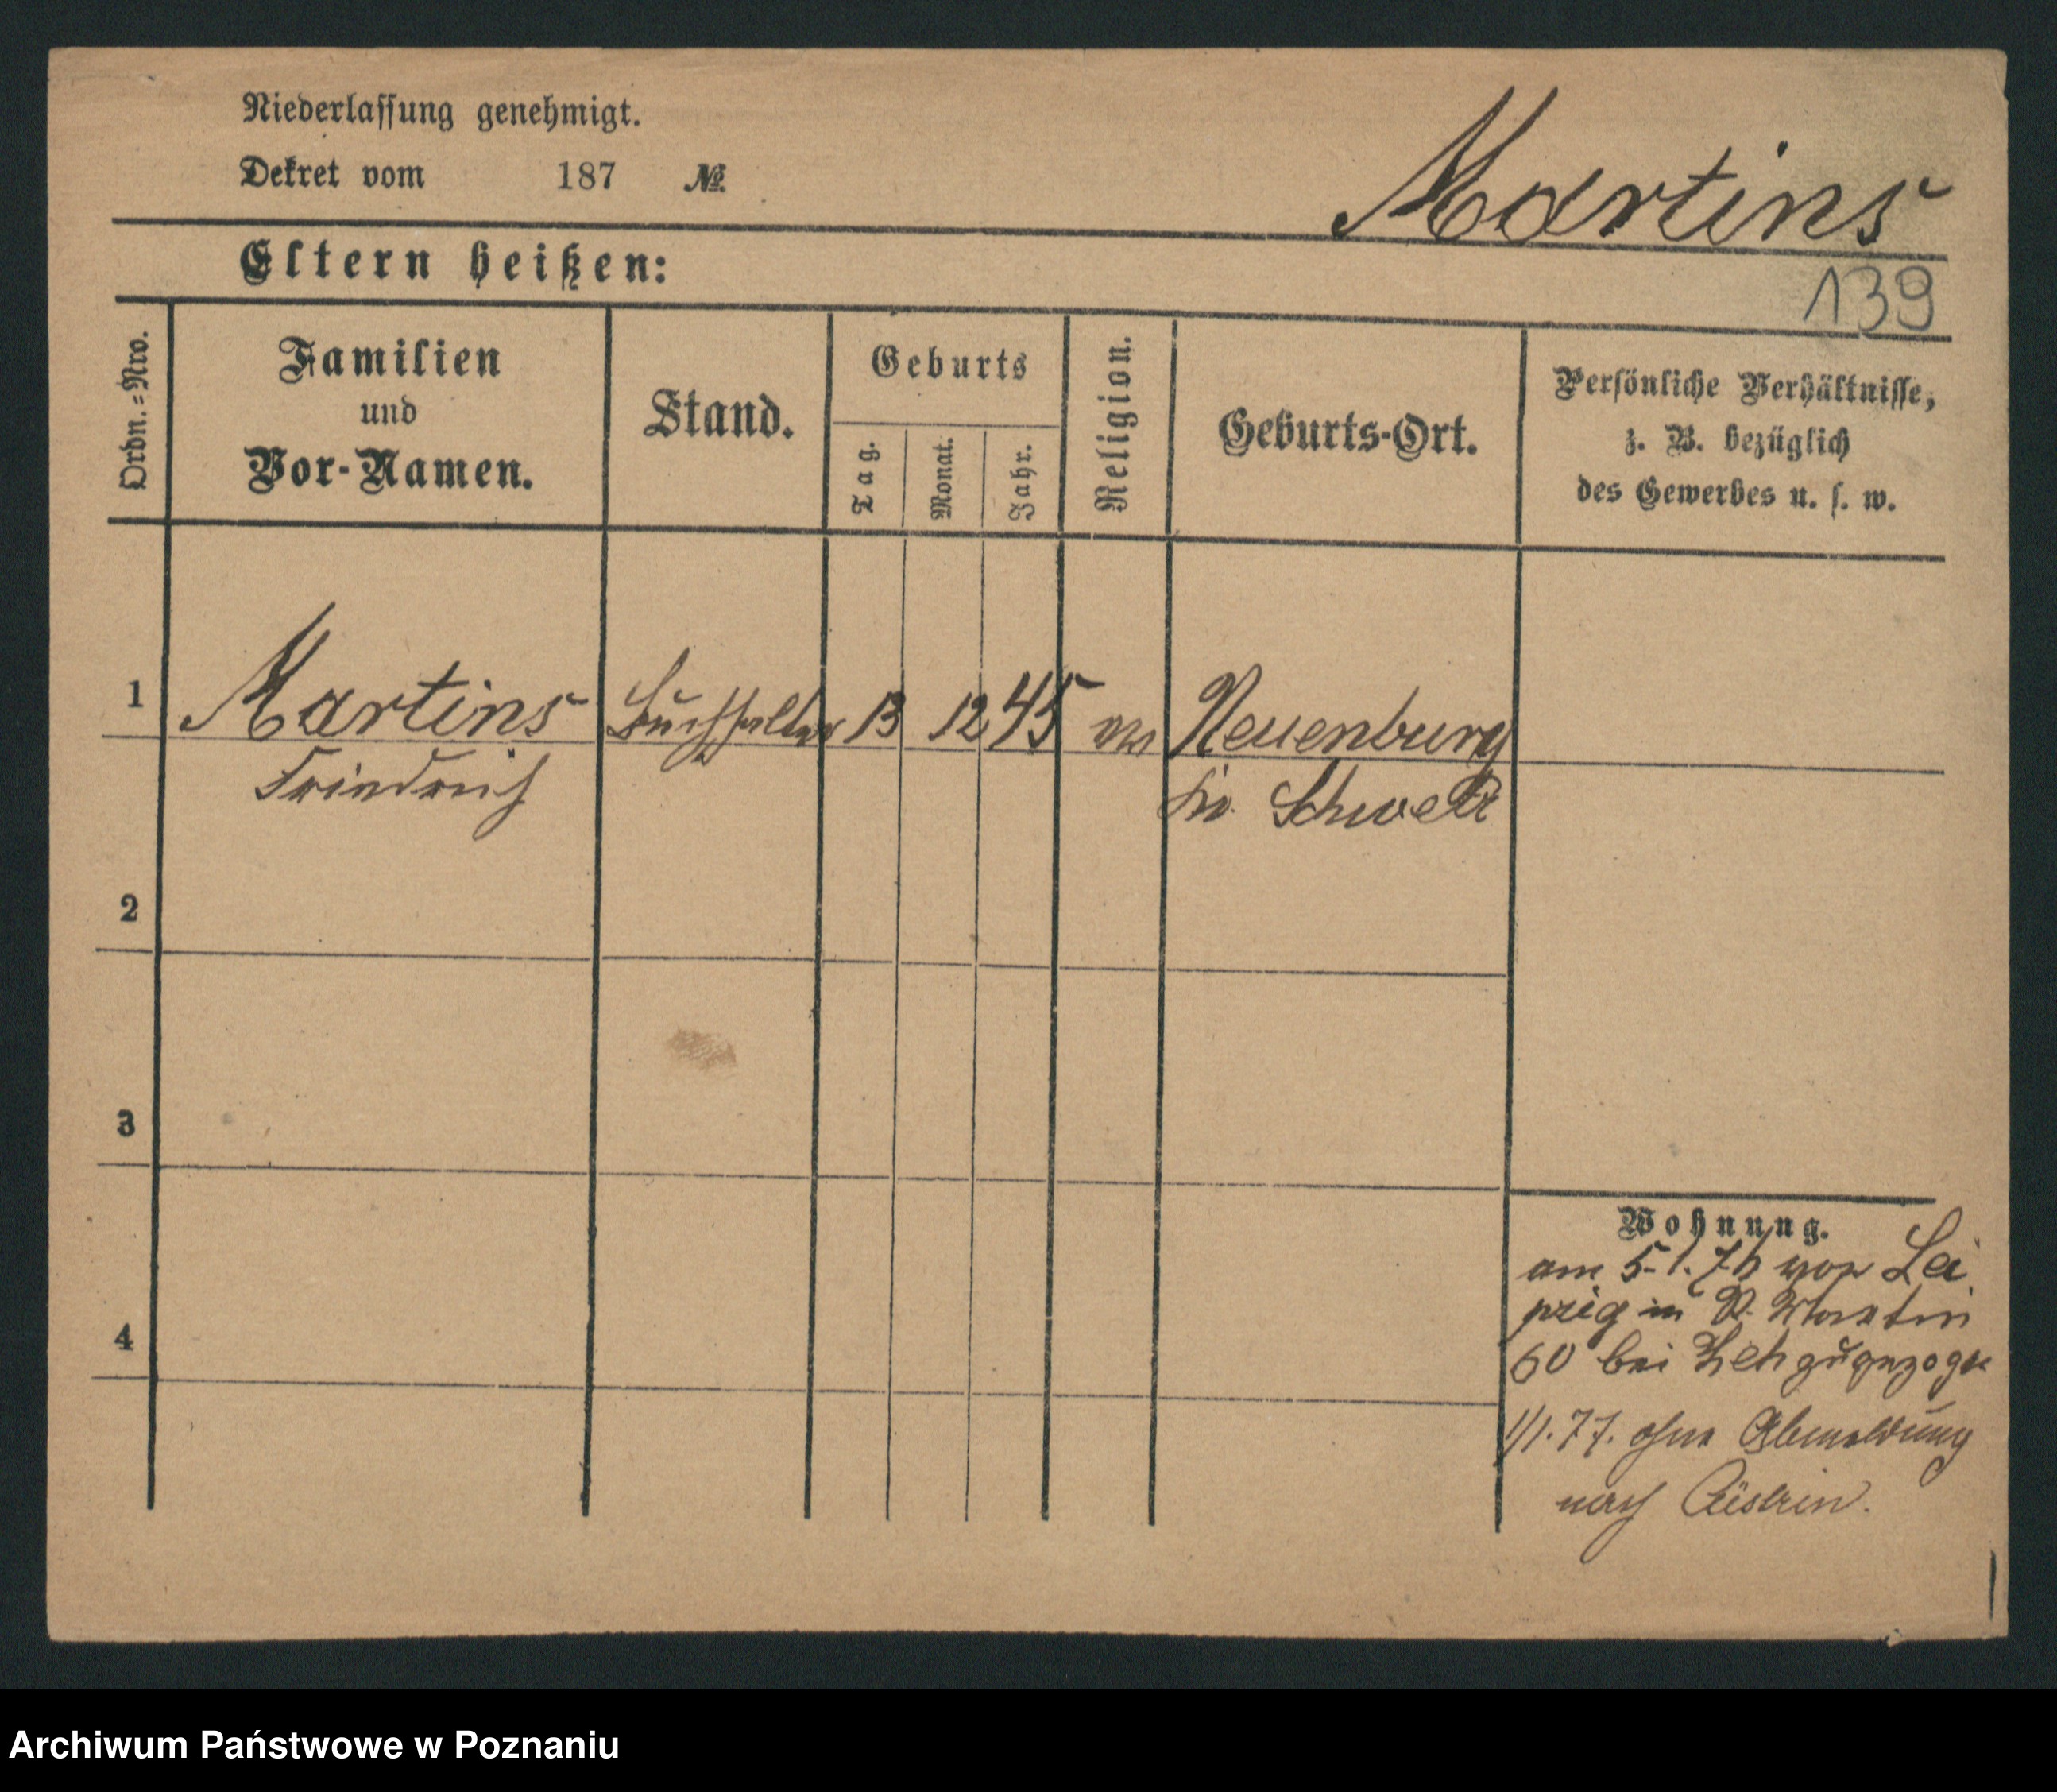 Niederlassung genehmigt.
Dekret vom 187 №
Martins
Eltern heißen:
139
Ordn.=Nro.
Familien
und
Vor-Namen.
Stand.
Geburts
Tag.
Monat.
Jahr.
Religion.
Geburts-Ort.
Persönliche Verhältnisse,
z. B. bezüglich
des Gewerbes u. s. w.
1 Martins Buchhalter 13 12 45 Neuenburg
Friedrich Kr. Schwetz
2
3
4
Wohnung.
am 5.1.76 von Lei
pzig in St. Martin
60 bei zugezogen
1/1.77. ohne Abmeldung
nach Cüstrin.
Archiwum Państwowe w Poznaniu